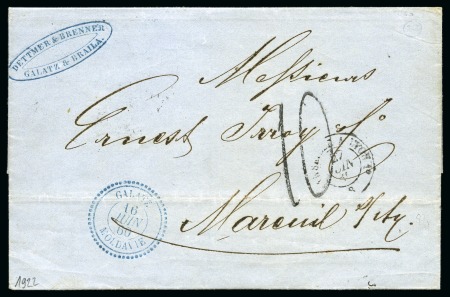 DETTMER & BRENNER
GALATZ & BRAILA.
Messieurs
Ernest Irroy & Co
10
Mareuil s/Ay.
GALATZ
16
JUIN
60
MOLDAVIE
JUIN
1922